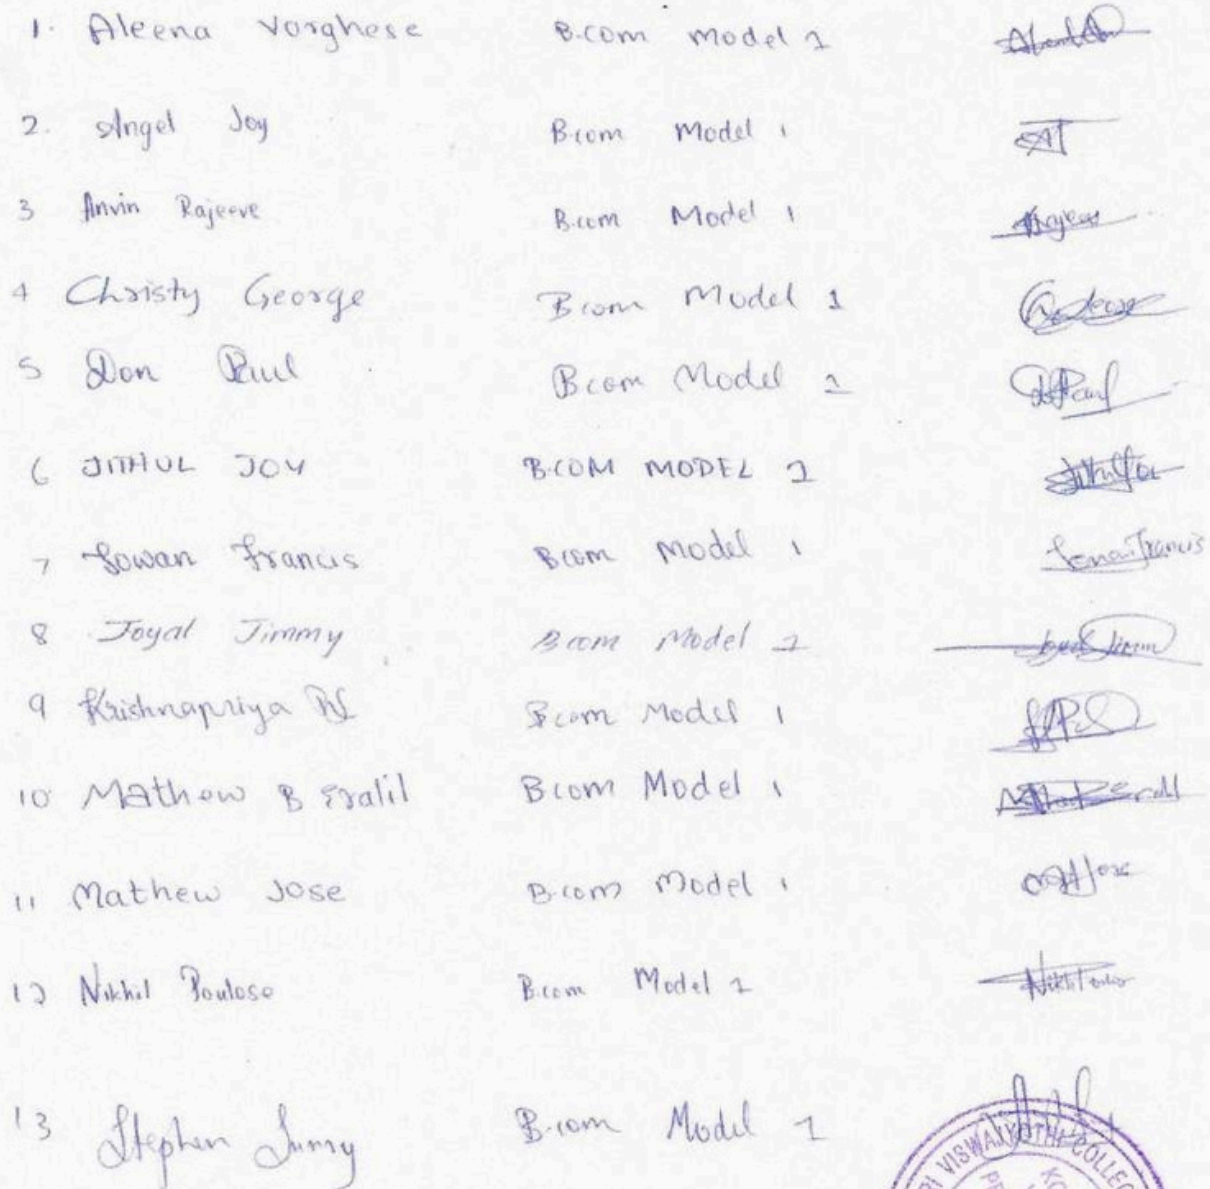 1. Aleena Varghese B.com Model 1
2. Angel Joy Bcom Model 1 AJ
3 Anvin Rajeeve B.com Model 1
4 Christy George Bcom Model 1
5 Don Paul Bcom Model 1 Paul
6 JITHUL JOY B.COM MODEL 1
7 Francis Bcom Model 1 Francis
8 Joyal Jimmy Bcom Model 1 Jimm
9 Krishnapriya Bcom Model 1
10 Mathew B Eralil Bcom Model 1
11 Mathew Jose B.com Model 1 Jose
12 Nikhil Poulose B.com Model 1
13 Stephen B.com Model 1
VISWAJYOTHI COLLEGE